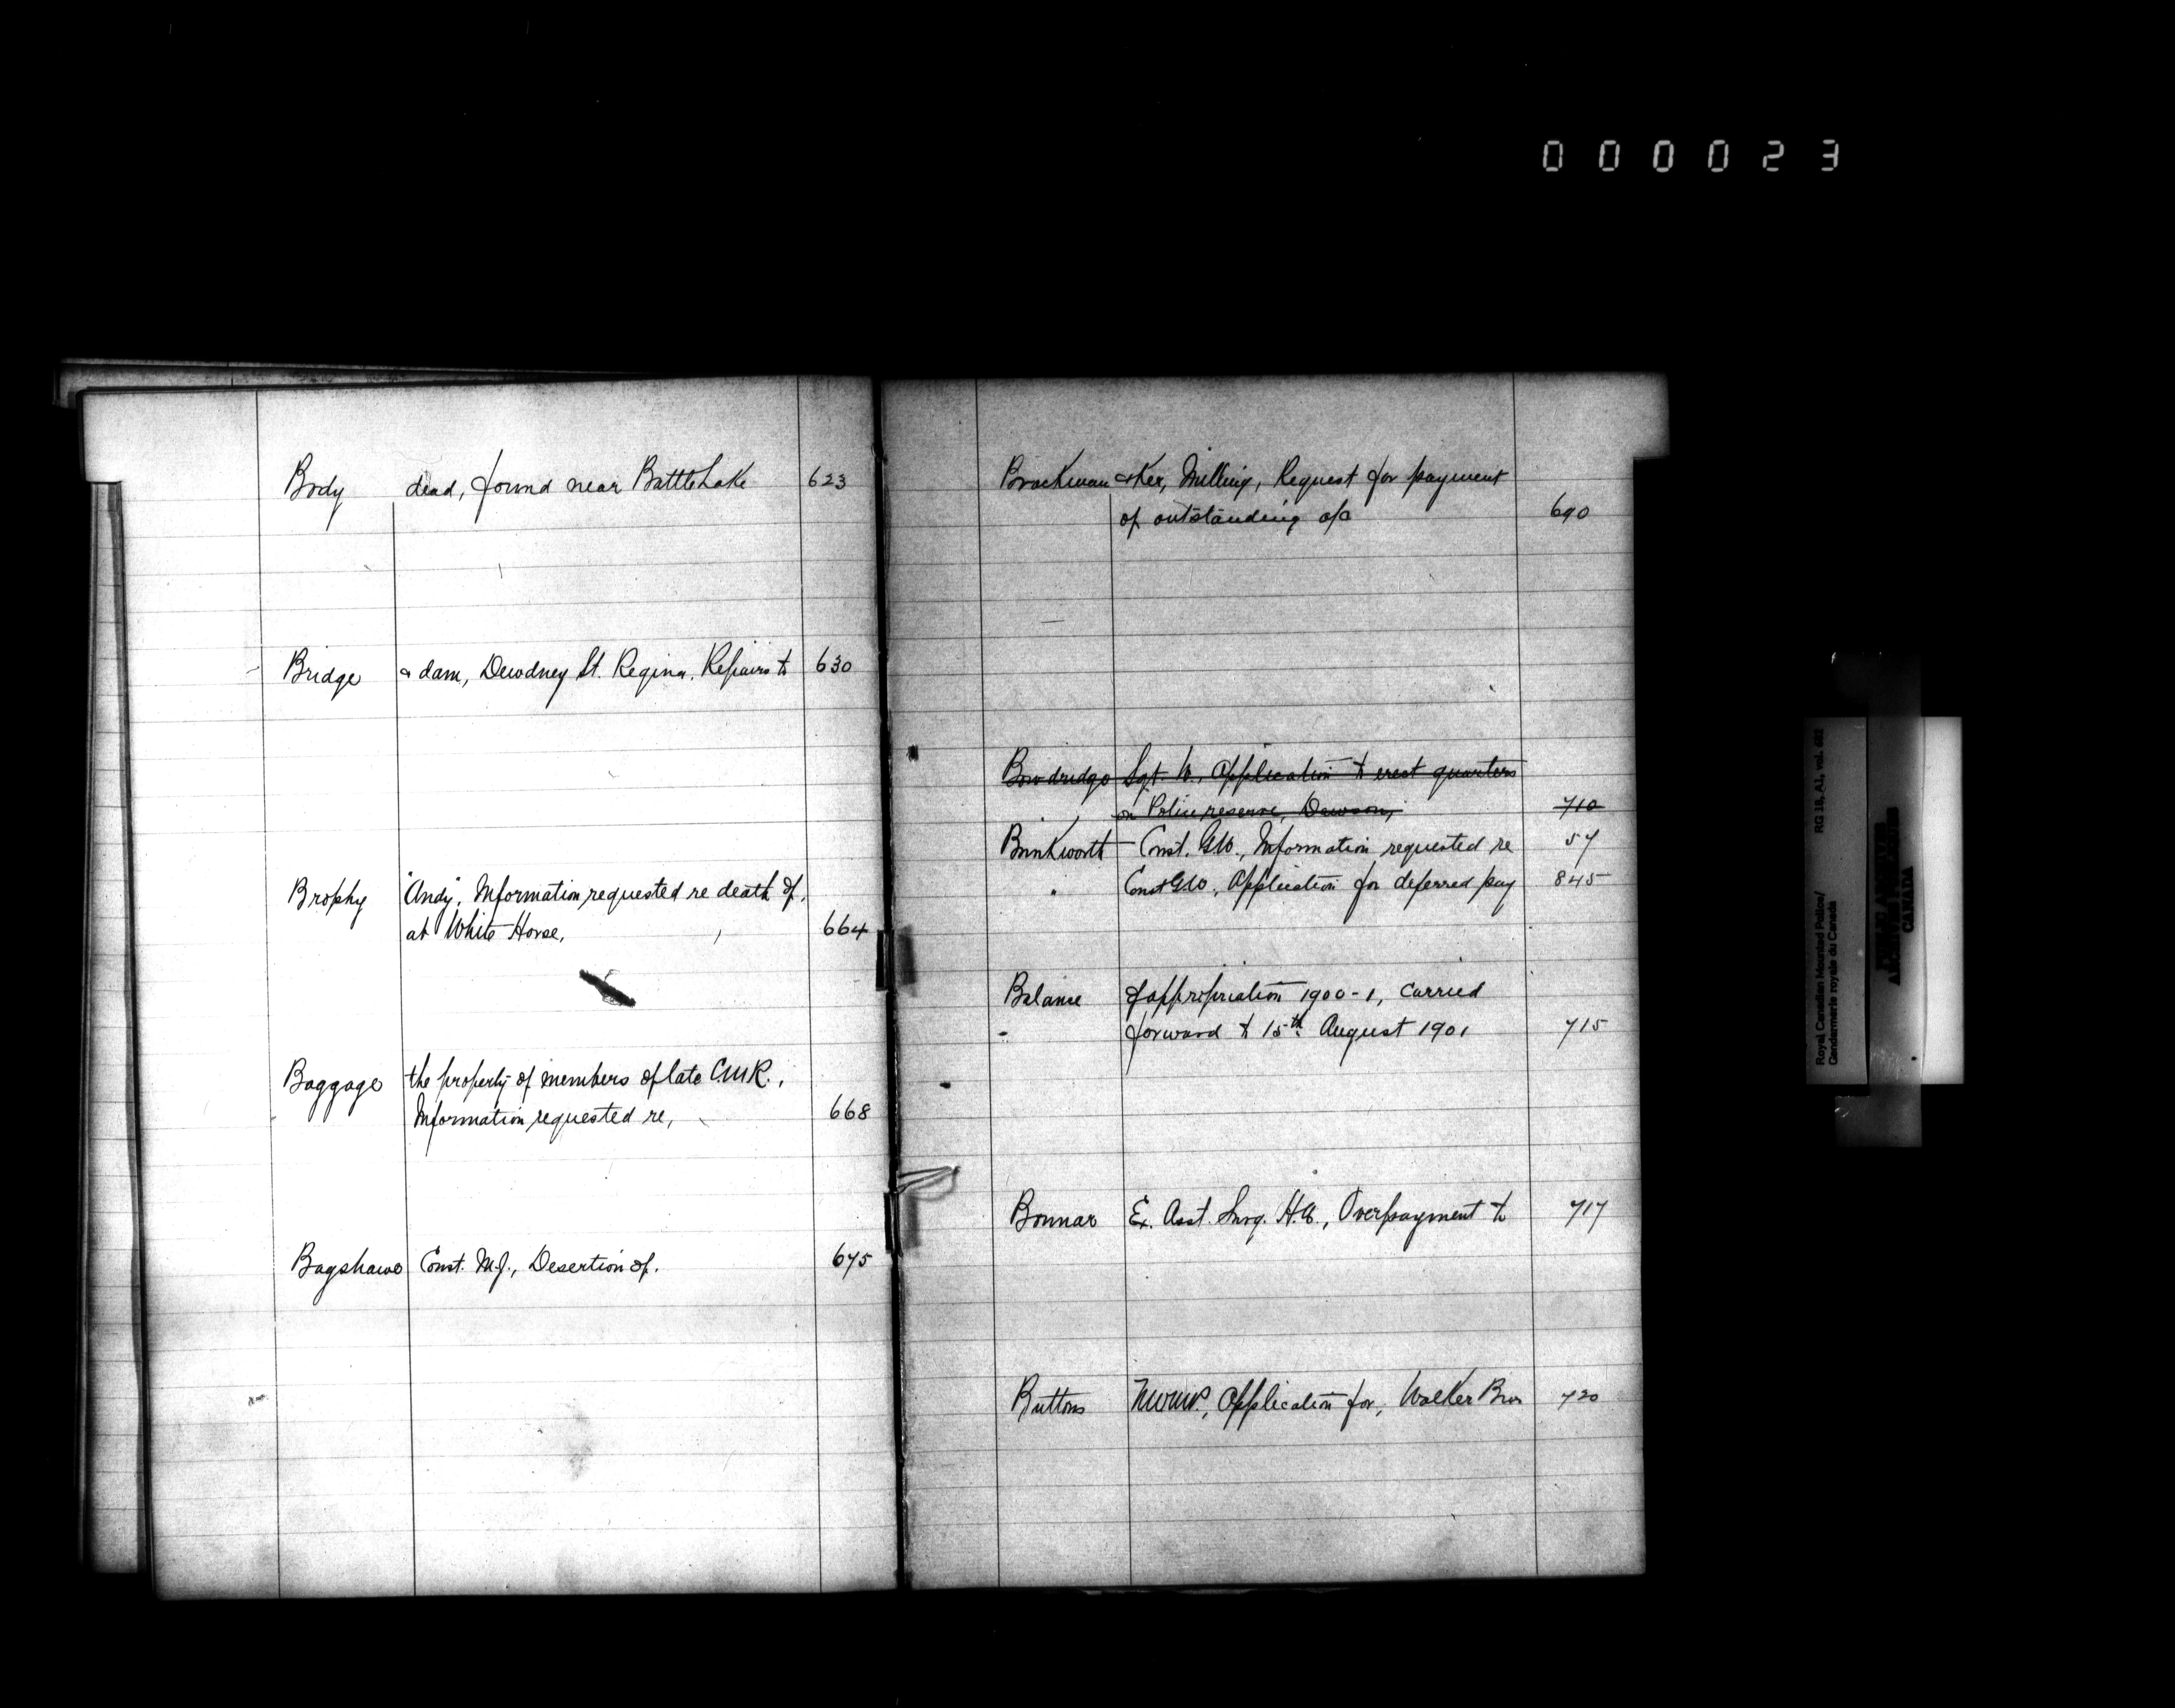 000023
Body dead, found near Battle Lake 623
Bridge & dam, Dewdney St. Regina. Repairs to 630
Brophy "Andy". Information requested re death of,
at White Horse, 664
Baggage the property of members of late C.M.R.,
Information requested re, 668
Bagshawe Const. M.J., Desertion of. 675
Brackman & Ker, Milling, Request for payment
of outstanding a/c 690
Bowdridge Sgt. W., Application to erect quarters
on Police reserve, Dawson, 710
Brinkworth Const. G.W., Information requested re 57
" Const G.W., Application for deferred pay 845
Balance of appropriation 1900-1, carried
forward to 15th August 1901 715
Bonnar Ex. Asst. Surg. H.A., Overpayment to 717
Buttons NWMP, Application for, Walker Bros 720
Royal Canadian Mounted Police/
Gendarmerie royale du Canada
RG 18, A1, vol. 
CANADA